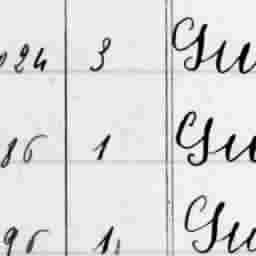 24 3 Gu
86 1 Gu
96 1 Gu